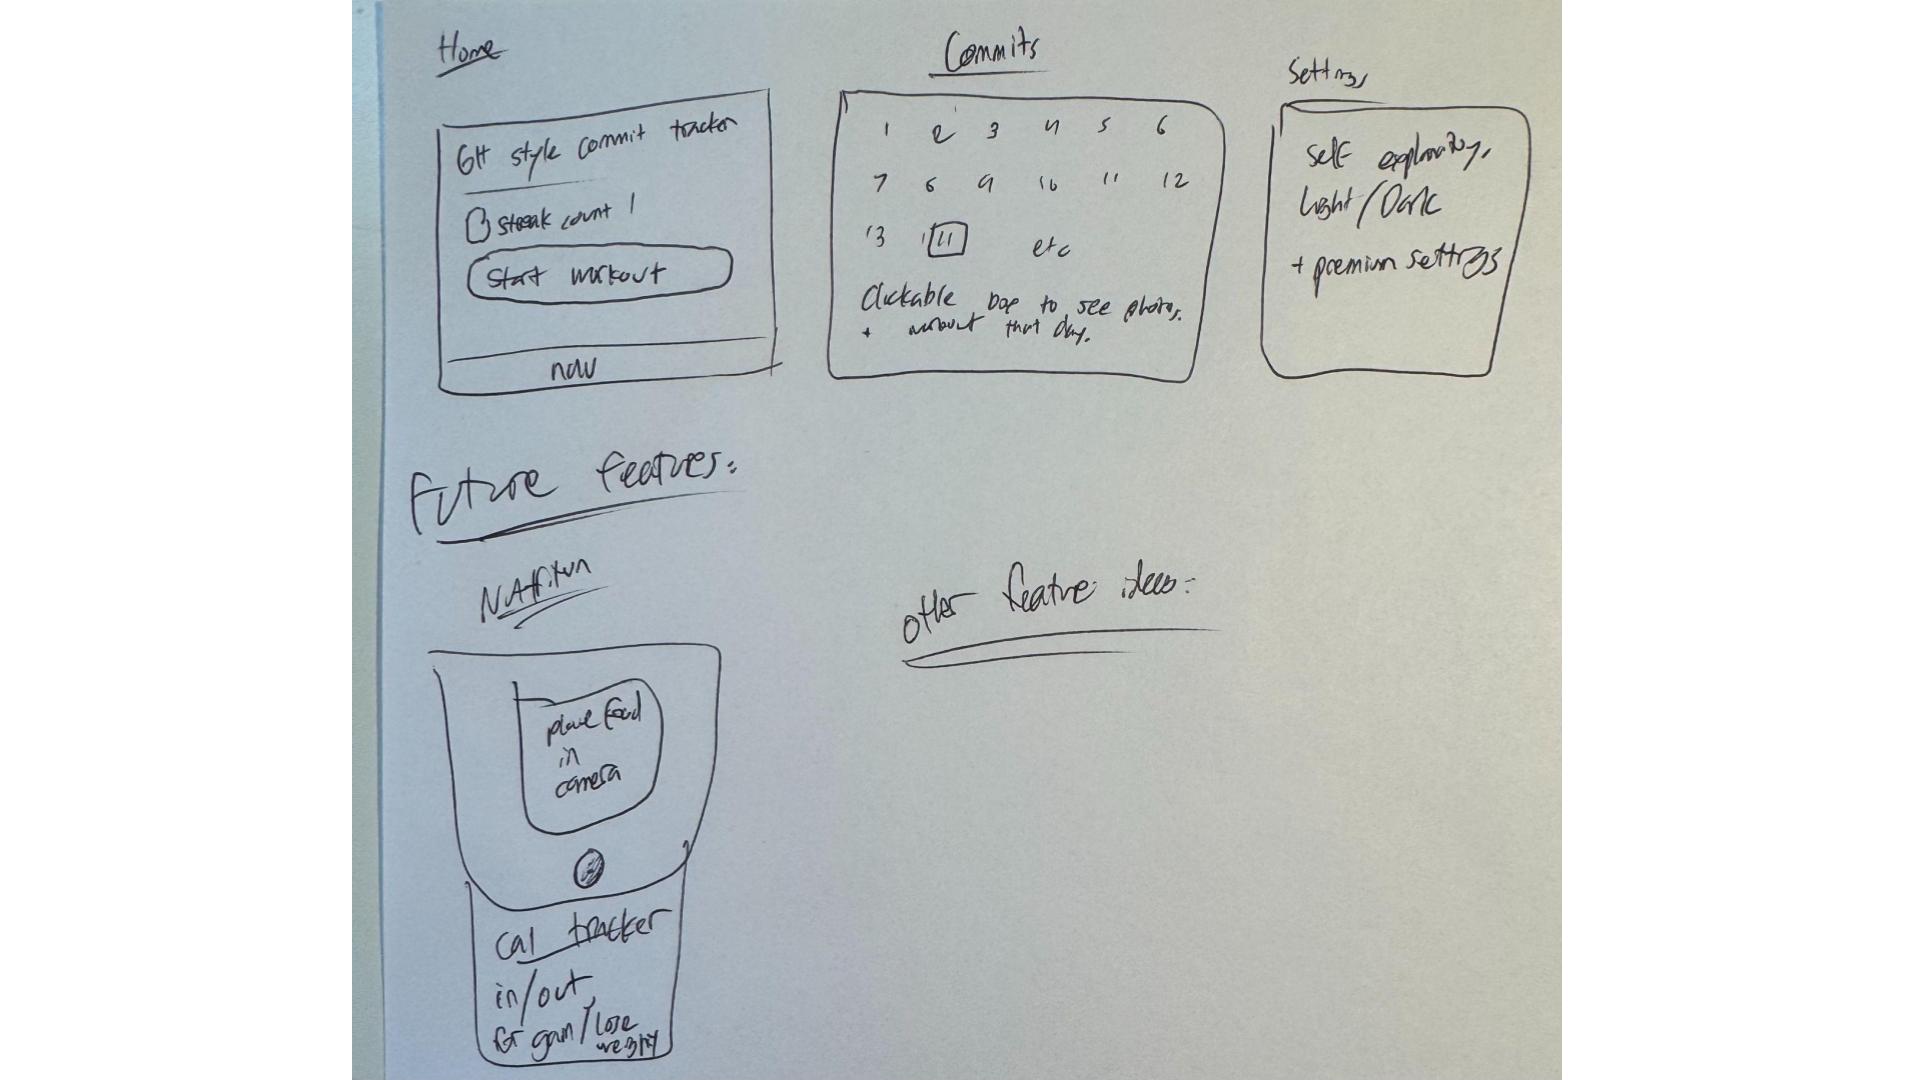 Home
GH style commit tracker
streak count 1
Start workout
nav
Commits
1 2 3 4 5 6
7 8 9 10 11 12
13 etc
Clickable box to see photos,
+ workout that day.
Settings
self explanatory,
Light/Dark
+ premium settings
Future features:
Nutrition
place food
in
camera
cal tracker
in/out
for gain/lose
weight
other feature ideas: